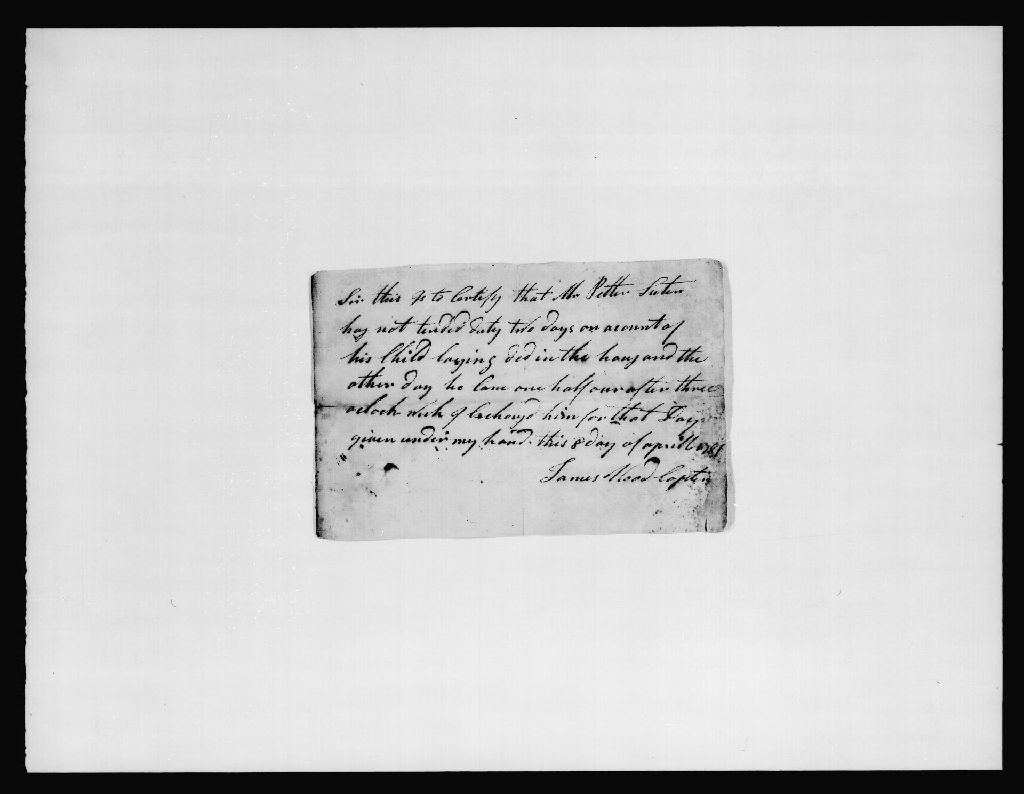 Sir this Is to Certify that Mr Petter Suter
has not tended duty two days on acount of
his Child laying ded in the haus and the
other day he Came one half our after three
oclock wich I Excharg'd him for that Day
given under my hand this 8 day of aprill 1785
James Wood Captin